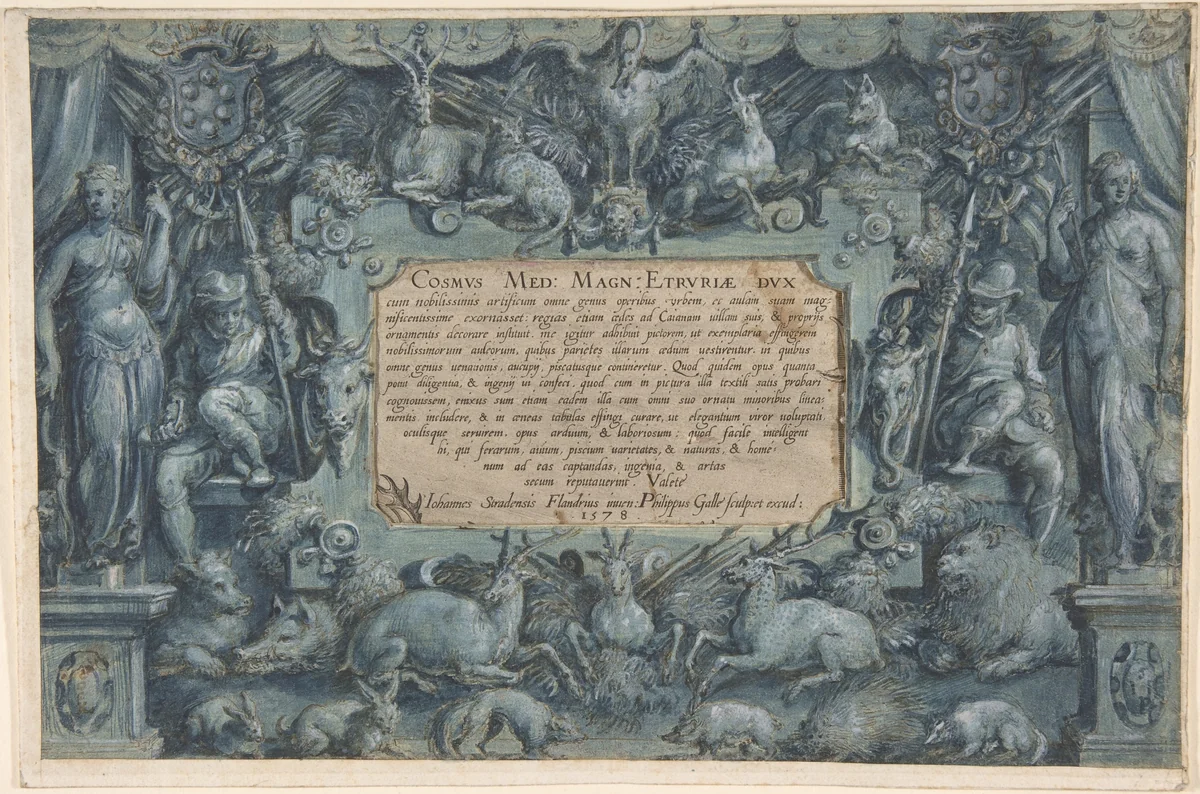 COSMVS MED: MAGN: ETRVRIÆ DVX
cum nobilissimis artificum omne genus operibus vrbem, et aulam suam mag-
nificentissime exornasset: regias etiam ædes ad Caianam uillam suis, & proprijs
ornamentis decorare instituit. me igitur adhibuit pictorem, ut exemplaria effingerem
nobilissimorum aulæorum, quibus parietes illarum ædium uestirentur. in quibus
omne genus uenationis, aucupij, piscatusque contineretur. Quod quidem opus quanta
potui diligentia, & ingenij ui confeci, quod cum in pictura illa textili satis probari
cognouissem, enixus sum etiam eadem illa cum omni suo ornatu minoribus linea-
mentis includere, & in æneas tabulas effingi curare, ut elegantium viror uoluptati
oculisque seruirem. opus arduum, & laboriosum: quod facile intelligent
hi, qui ferarum, auium, piscium uarietates, & naturas, & homi-
num ad eas captandas, ingenia, & artas
secum reputauerint. Valete
Iohannes Stradensis Flandrius inuen: Philippus Galle sculp: et excud:
1578